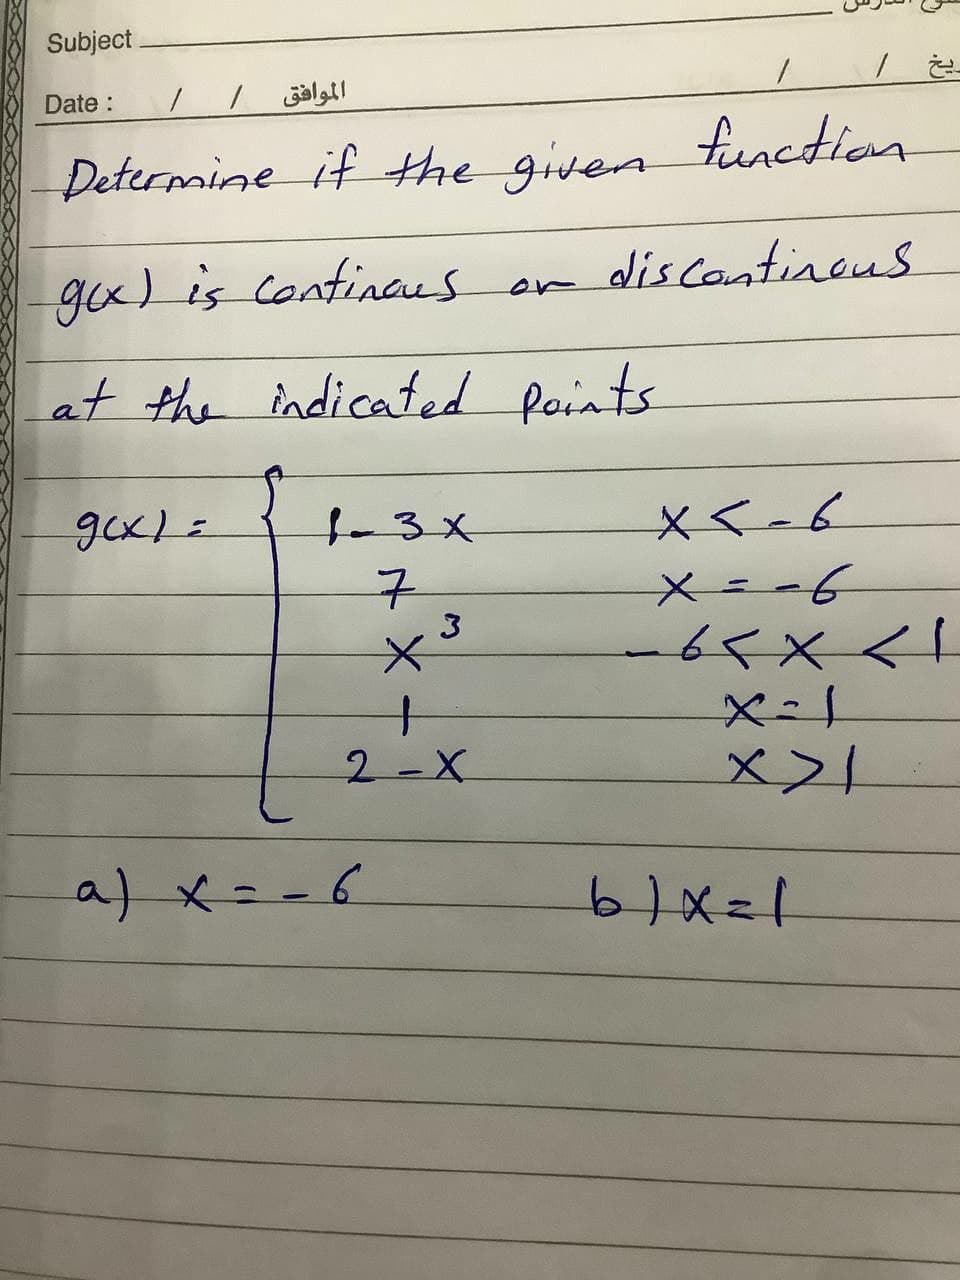 Subject
Date : / / الموافق / /
Determine if the given function
g(x) is continous or discontinous
at the indicated points
g(x) = { 1 - 3x x < -6
7 x = -6
x³ -6 < x < 1
1 x = 1
2 - x x > 1
a) x = -6 b) x = 1